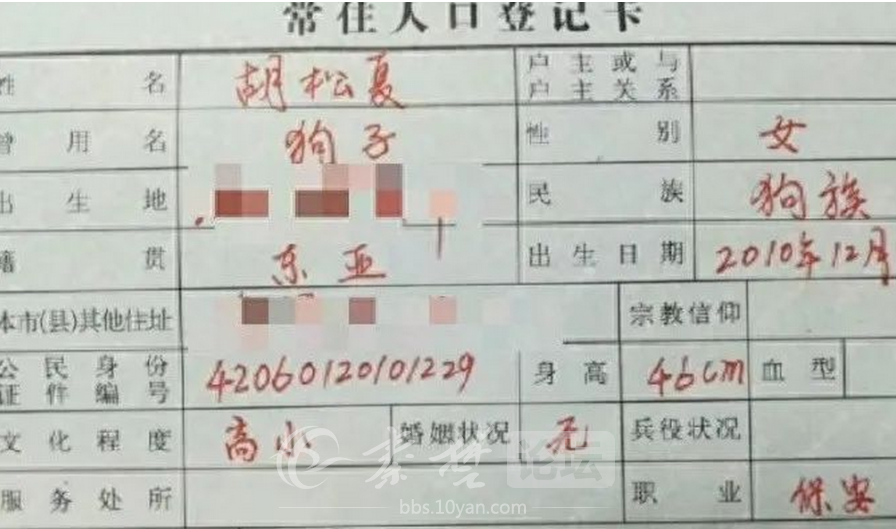 常住人口登记卡
姓名 胡松夏 户主或与户主关系
曾用名 狗子 性别 女
出生地 民族 狗族
籍贯 东亚 出生日期 2010年12月
本市(县)其他住址 宗教信仰
公民身份证件编号 42060120101229 身高 46cm 血型
文化程度 高小 婚姻状况 无 兵役状况
服务处所 职业 保安
秦楚论坛
bbs.10yan.com